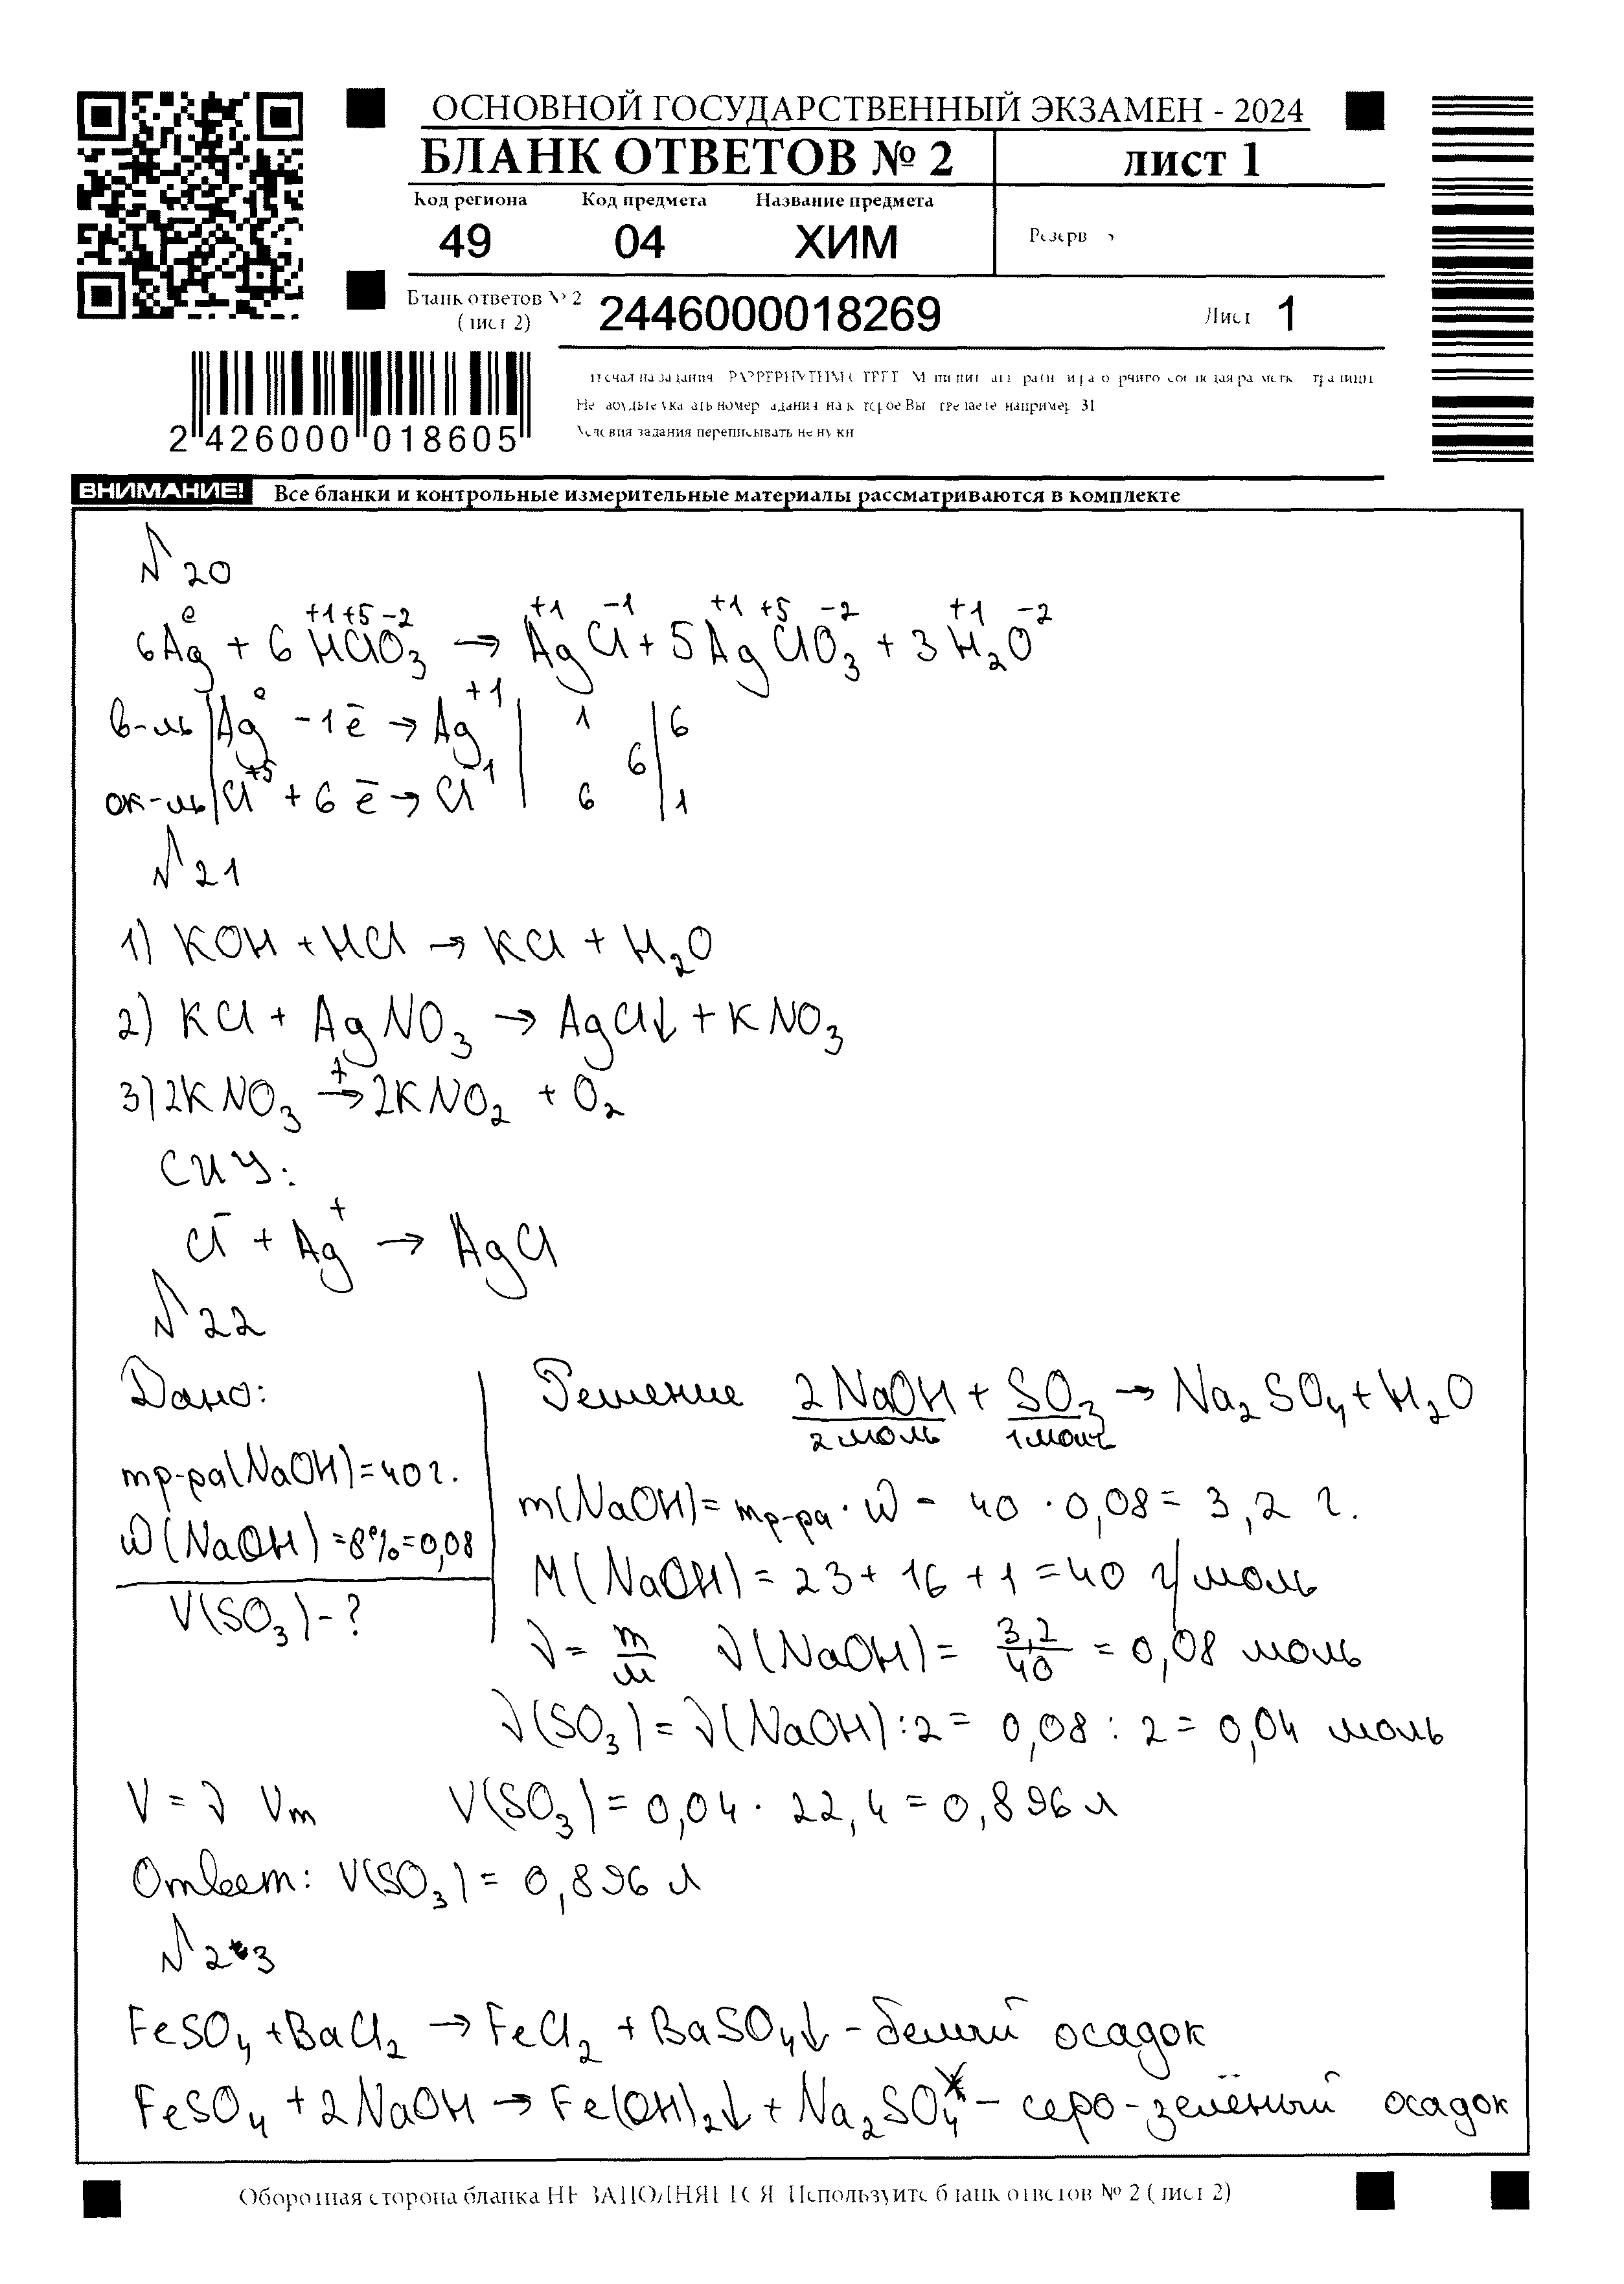 ОСНОВНОЙ ГОСУДАРСТВЕННЫЙ ЭКЗАМЕН - 2024
БЛАНК ОТВЕТОВ № 2
лист 1
Код региона Код предмета Название предмета
49 04 ХИМ
Резерв
Бланк ответов № 2
(лист 2)
2446000018269
Лист 1
2 426000 018605
Условия задания переписывать не нужн
ВНИМАНИЕ! Все бланки и контрольные измерительные материалы рассматриваются в комплекте
№ 20
6Ag⁰ + 6H⁺¹Cl⁺⁵O₃⁻² → Ag⁺¹Cl⁻¹ + 5Ag⁺¹Cl⁺⁵O₃⁻² + 3H₂⁺¹O⁻²
в-ль | Ag⁰ - 1ē → Ag⁺¹ | 1 | 6
6
ок-ль | Cl⁺⁵ + 6ē → Cl⁻¹ | 6 | 1
№ 21
1) KOH + HCl → KCl + H₂O
2) KCl + AgNO₃ → AgCl↓ + KNO₃
3) 2KNO₃ →ᵗ 2KNO₂ + O₂
СИУ:
Cl⁻ + Ag⁺ → AgCl
№ 22
Дано:
mр-ра(NaOH)=40г.
ω(NaOH)=8%=0,08
V(SO₃) - ?
Решение 2NaOH + SO₃ → Na₂SO₄ + H₂O
2моль 1моль
m(NaOH) = mр-ра · ω = 40 · 0,08 = 3,2 г.
M(NaOH) = 23 + 16 + 1 = 40 г/моль
ν = m/м ν(NaOH) = 3,2/40 = 0,08 моль
ν(SO₃) = ν(NaOH):2 = 0,08 : 2 = 0,04 моль
V = ν Vm V(SO₃) = 0,04 · 22,4 = 0,896 л
Ответ: V(SO₃) = 0,896 л
№ 23
FeSO₄ + BaCl₂ → FeCl₂ + BaSO₄↓ - белый осадок
FeSO₄ + 2NaOH → Fe(OH)₂↓ + Na₂SO₄ - серо-зелёный осадок
Оборотная сторона бланка НЕ ЗАПОЛНЯЕТСЯ. Используйте бланк ответов № 2 (лист 2)